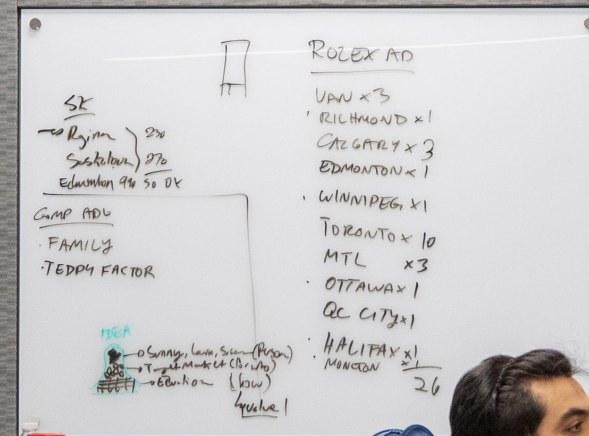 SK
Regina 230
Saskatoon 270
Edmonton 9% 50 DX
COMP ADV
· FAMILY
· TEDDY FACTOR
IDEA
Sunny, Laura, (Person)
Target Market
Education (how)
value
ROLEX AD
VAN x 3
· RICHMOND x 1
CALGARY x 3
EDMONTON x 1
· WINNIPEG x 1
TORONTO x 10
MTL x 3
· OTTAWA x 1
QC CITY x 1
· HALIFAX x 1
· MONCTON x 1
26